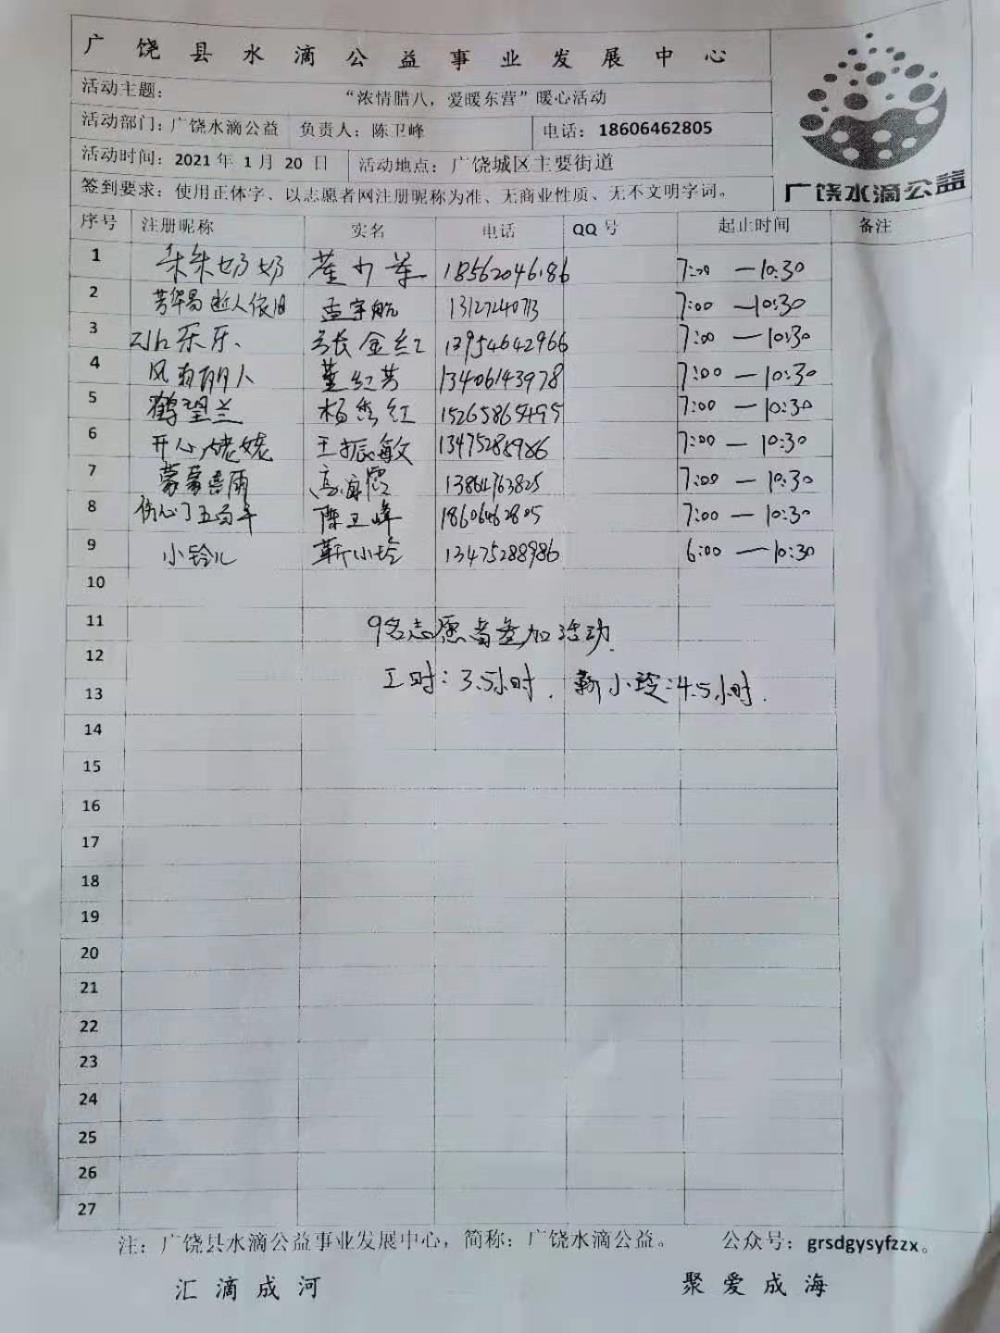 广饶县水滴公益事业发展中心
活动主题： “浓情腊八，爱暖东营”暖心活动
活动部门：广饶水滴公益 负责人：陈卫峰 电话：18606462805
活动时间：2021年1月20日 活动地点：广饶城区主要街道
签到要求：使用正体字、以志愿者网注册昵称为准、无商业性质、无不文明字词。
广饶水滴公益
序号 注册昵称 实名 电话 QQ号 起止时间 备注
1 朵朵奶奶 18562046186 7:00 — 10:30
2 孟宇航 7:00 — 10:30
3 乐乐 张金红 13954642966 7:00 — 10:30
4 董红芳 13406143978 7:00 — 10:30
5 鹤望兰 杨秀红 15265865495 7:00 — 10:30
6 开心姥姥 王振敏 13475288986 7:00 — 10:30
7 蒙蒙喜雨 高海霞 13864763825 7:00 — 10:30
8 伤心了五百年 陈卫峰 18606462805 7:00 — 10:30
9 小铃儿 靳小玲 13475288986 6:00 — 10:30
10
11 9名志愿者参加活动.
12
工时：3.5小时. 靳小玲：4.5小时.
13
14
15
16
17
18
19
20
21
22
23
24
25
26
27
注：广饶县水滴公益事业发展中心，简称：广饶水滴公益。 公众号：grsdgysyfzzx。
汇滴成河 聚爱成海